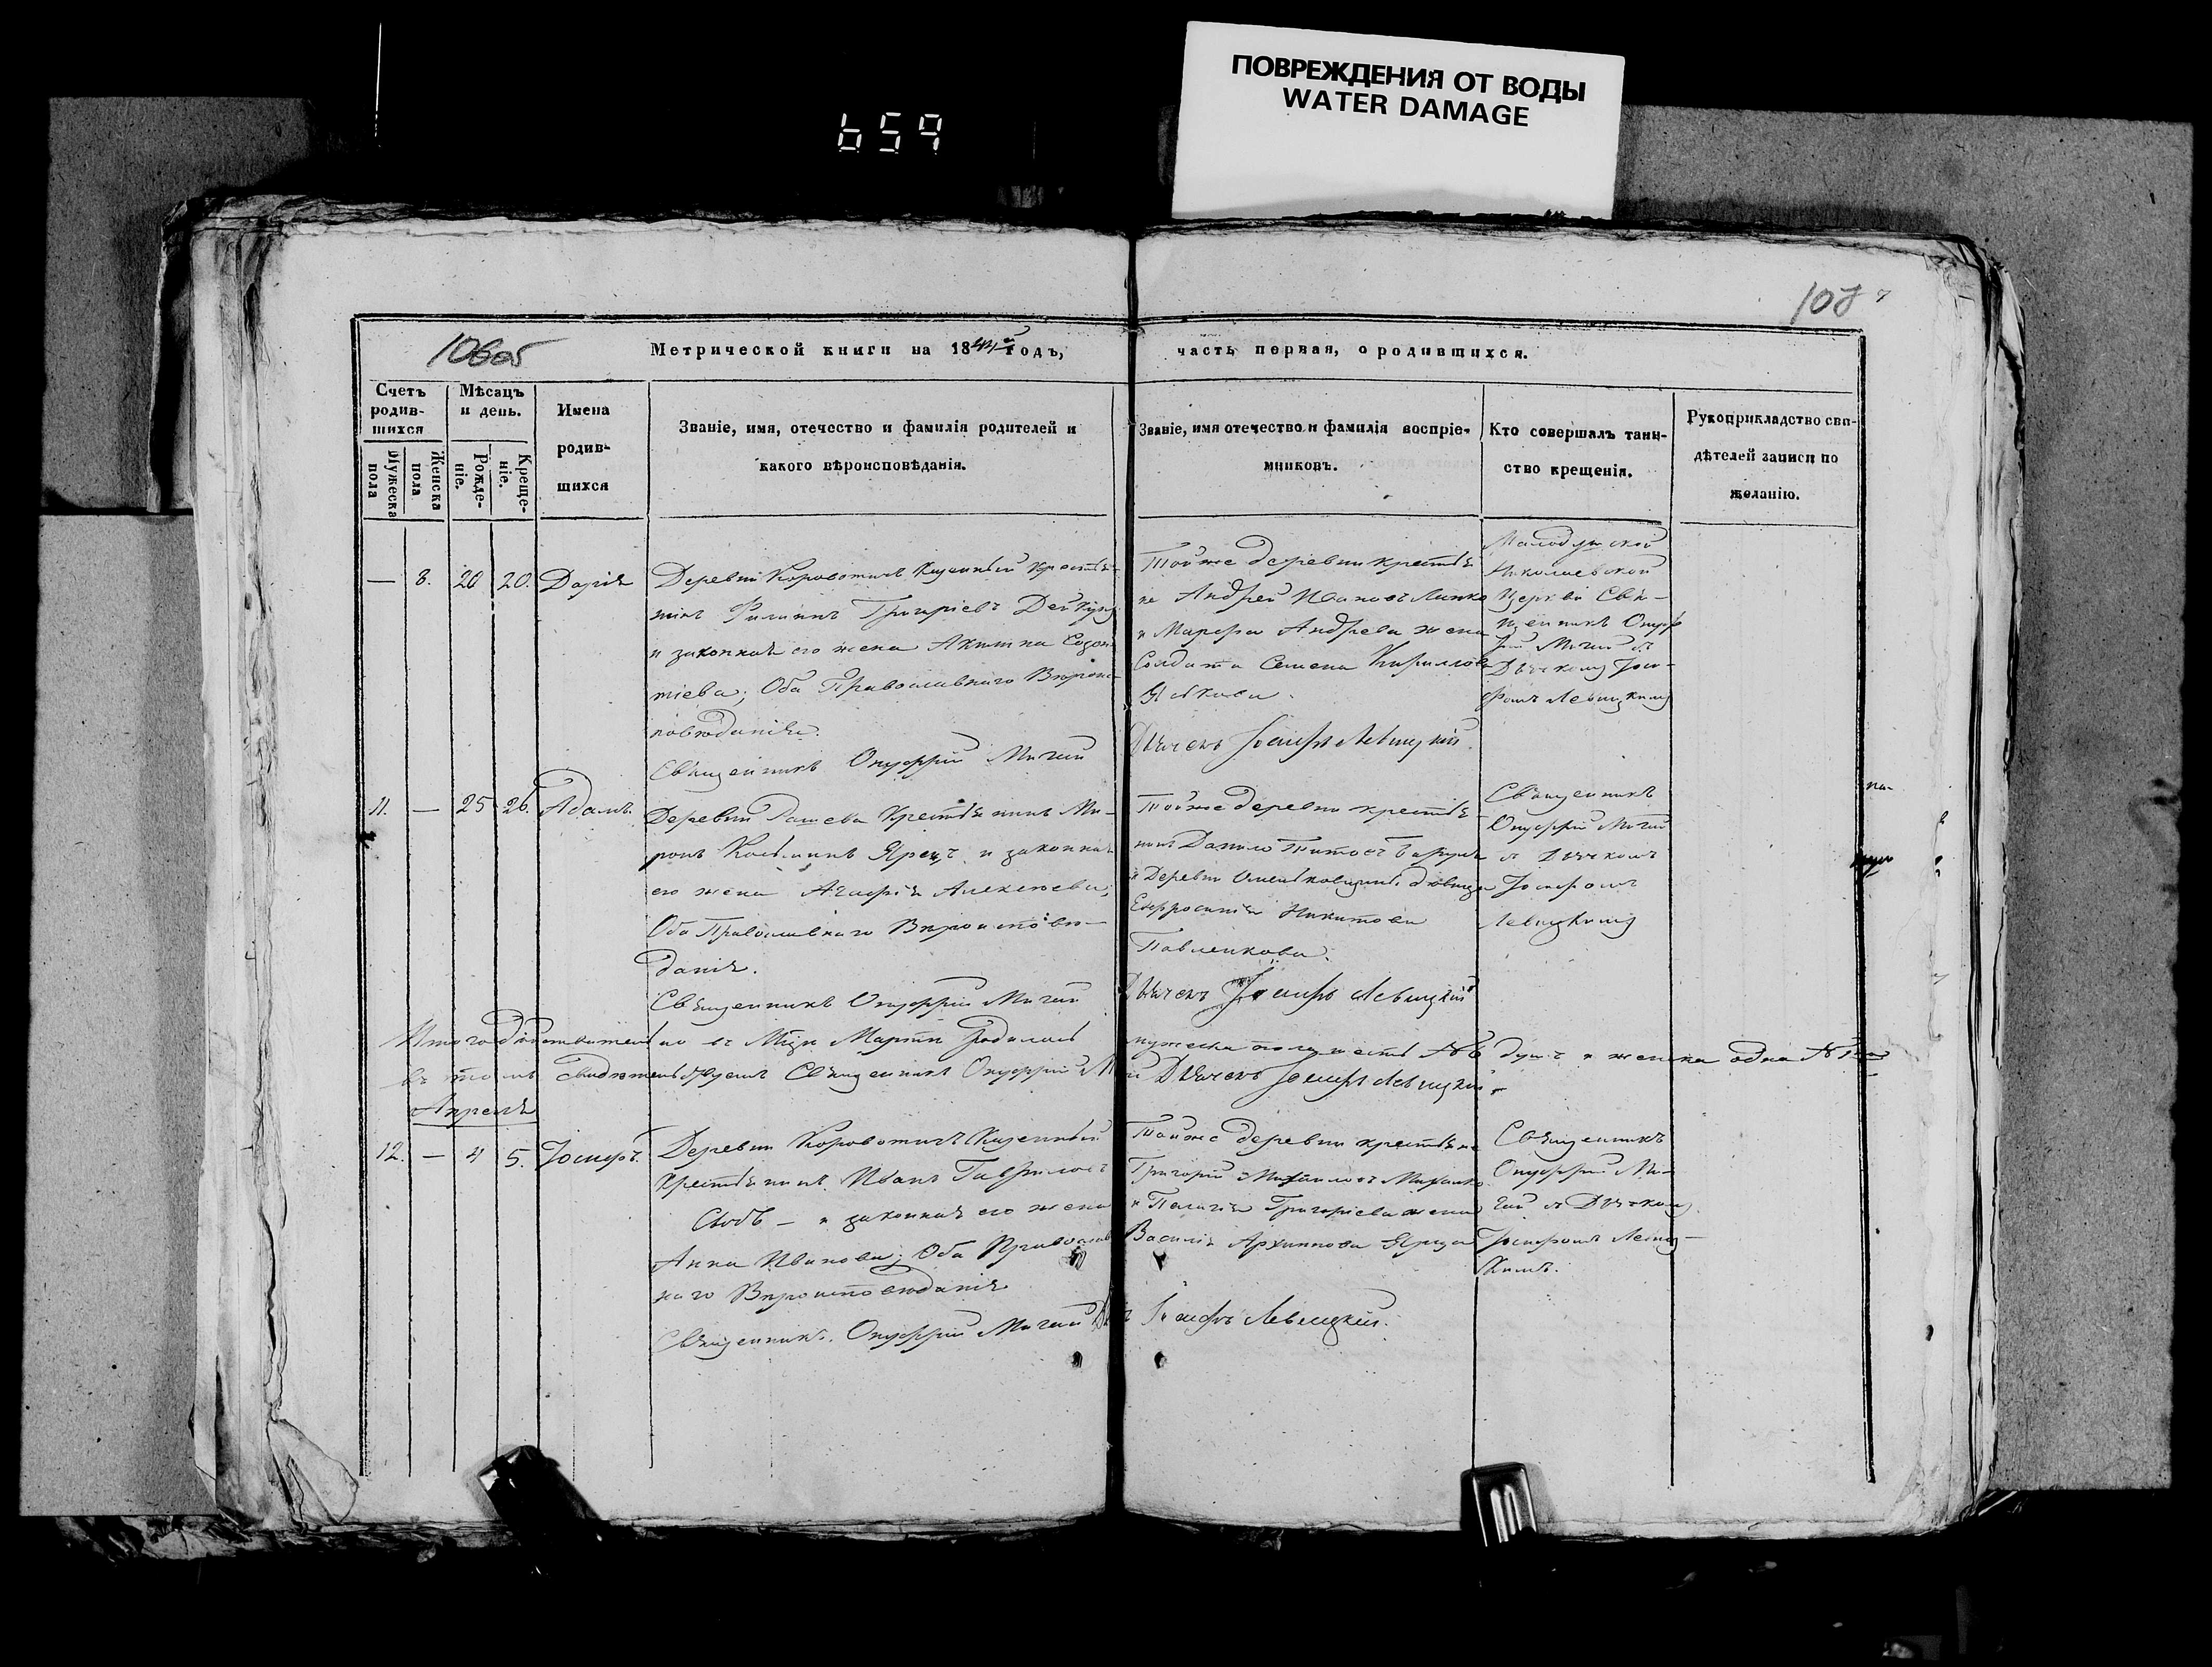 ПОВРЕЖДЕНИЯ ОТ ВОДЫ
WATER DAMAGE
659
108
106об
Метрической книги на 1844й годъ,
часть первая, о родившихся.
Счетъ родившихся
Мужеска пола
Женска пола
Мѣсяцъ и день.
Рожденіе.
Крещеніе.
Имена родившихся
Званіе, имя, отечество и фамилія родителей и
какого вѣроисповѣданія.
Званіе, имя отечество и фамилія воспріе-
мниковъ.
Кто совершалъ таин-
ство крещенія.
Рукоприкладство сви-
дѣтелей записи по
желанію.
— 8. 20 20. Дарія
Деревни Коровотичь Казенный Крестья-
нинъ Филипъ Григоріевъ
и законная его жена Созон-
тіева; Оба Православнаго Вѣроис-
повѣданія.
Священникъ Онуфрій Мигай
Тойже деревни крестья
не Андрей Ивановъ
и Марфа Андреева жена
Солдата Семена Кириллова
Дьячекъ Іосифъ Левицкій.
Николаевской
Церкви Свя-
щенникъ Онуф
рій Мигай съ
Дьячкомъ Іоси-
фомъ Левицкимъ
11. — 25 26. Адамъ.
Деревни Крестьянинъ Ми-
ронъ Козьминъ Ярецъ и законная
его жена Агафія Алексѣева;
Оба Православнаго Вѣроисповѣ-
данія.
Священникъ Онуфрій Мигай
Тойже деревни крестья-
нинъ Данило Титовъ
и Деревни дѣвица
Евфросинія Никитова
Павленкова.
Дьячекъ Іосифъ Левицкій
Священникъ
Онуфрій Мигай
съ Дьячкомъ
Іосифомъ
Левицкимъ
Итого въ Мцѣ Мартѣ родилось мужеска пола шесть №6 душъ и женска одна №1
въ томъ Священникъ Онуфрій Дьячекъ Іосифъ Левицкій
Апреля
12. — 4 5. Іосифъ.
Деревни Коровотичь Казенный
Крестьянинъ Иванъ Гавриловъ
— и законная его жена
Анна Иванова; Оба Православ
наго Вѣроисповѣданія
Священникъ Онуфрій Мигай
Тойже деревни крестьяне
Григорій Михайловъ
и Пелагія Григоріева жена
Василія Архипова Ярца
Іосифъ Левицкій.
Священникъ
Онуфрій Ми-
гай съ Дьячкомъ
Іосифомъ Левиц-
кимъ.